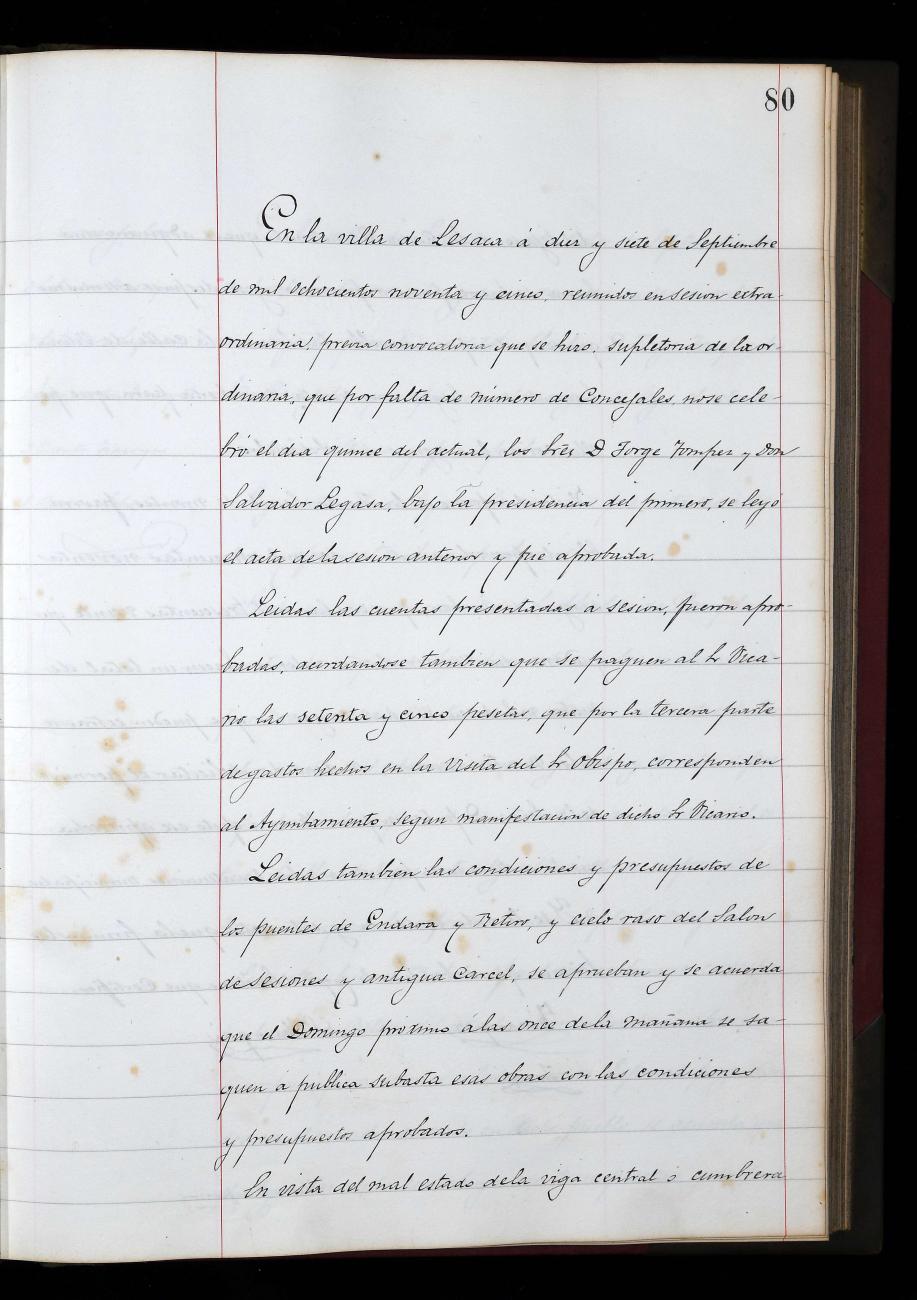 80
En la villa de Lesaca á diez y siete de Septiembre
de mil ochocientos noventa y cinco, reunidos en sesion extra-
ordinaria, previa convocatoria que se hizo, supletoria de la or-
dinaria, que por falta de número de Concejales, no se cele-
bró el dia quince del actual, los Srēs D Jorge Tompes y Don
Salvador Legasa, bajo la presidencia del primero, se leyó
el acta de la sesion anterior y fué aprobada.
Leidas las cuentas presentadas á sesion, fueron apro-
badas, acordandose tambien que se paguen al Sr Vica-
rio las setenta y cinco pesetas, que por la tercera parte
de gastos hechos en la visita del Sr Obispo, corresponden
al Ayuntamiento, segun manifestacion de dicho Sr Vicario.
Leidas tambien las condiciones y presupuestos de
los puentes de Endara y Retiro, y cielo raso del Salon
de sesiones y antigua Carcel, se aprueban y se acuerda
que el Domingo proximo á las once de la mañana se sa-
quen á publica subasta esas obras con las condiciones
y presupuestos aprobados.
En vista del mal estado de la viga central ó cumbrera